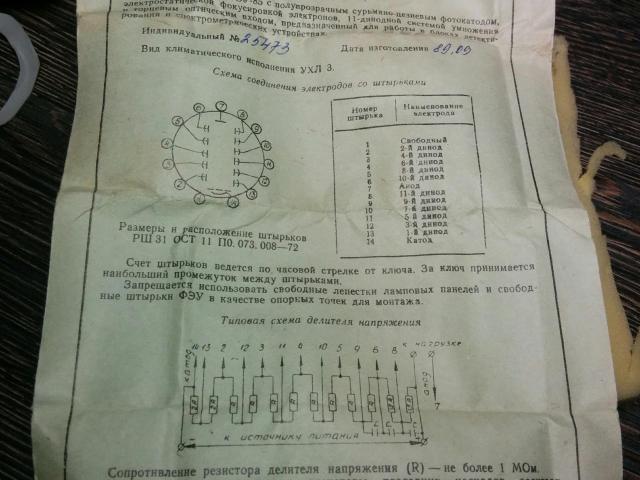 85 с полупрозрачным сурьмяно-цезиевым фотокатодом,
электростатической фокусировкой электронов, 11-динодной системой умножения
и торцевым оптическим входом, предназначенный для работы в блоках детекти-
рования и спектрометрических устройствах.
Индивидуальный № 25473 Дата изготовления 89,09
Вид климатического исполнения УХЛ 3.
Схема соединения электродов со штырьками
Номер штырька Наименование электрода
1 Свободный
2 2-й динод
3 4-й динод
4 6-й динод
5 8-й динод
6 10-й динод
7 Анод
8 11-й динод
9 9-й динод
10 7-й динод
11 5-й динод
12 3-й динод
13 1-й динод
14 Катод
Размеры и расположение штырьков
РШ 31 ОСТ 11 П0. 073. 008—72
Счет штырьков ведется по часовой стрелке от ключа. За ключ принимается
наибольший промежуток между штырьками.
Запрещается использовать свободные лепестки ламповых панелей и свобод-
ные штырьки ФЭУ в качестве опорных точек для монтажа.
Типовая схема делителя напряжения
14 13 2 12 3 11 4 10 5 9 6 8 к нагрузке
катод
анод
7
к источнику питания
Сопротивление резистора делителя напряжения (R) — не более 1 МОм.